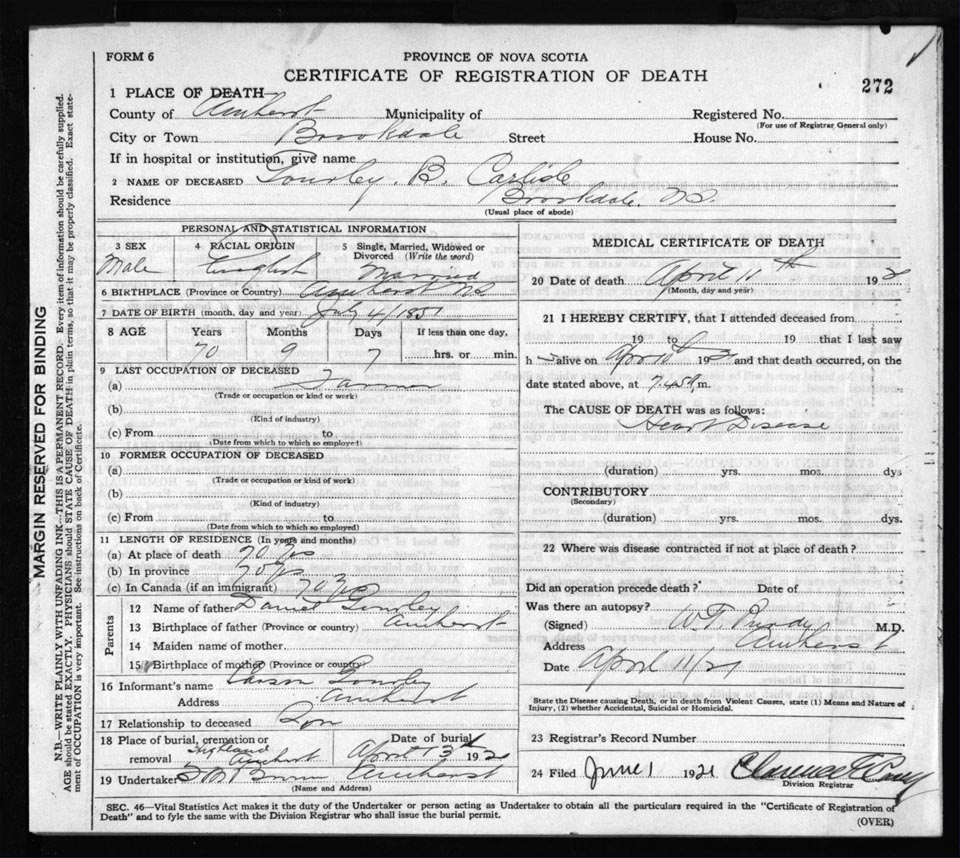 FORM 6
PROVINCE OF NOVA SCOTIA
CERTIFICATE OF REGISTRATION OF DEATH
272
1 PLACE OF DEATH
County of Amherst Municipality of Registered No.
(For use of Registrar General only)
City or Town Brookdale Street House No.
If in hospital or institution, give name
2 NAME OF DECEASED B. Carlisle
Residence Brookdale, N.S.
(Usual place of abode)
PERSONAL AND STATISTICAL INFORMATION
3 SEX 4 RACIAL ORIGIN 5 Single, Married, Widowed or Divorced (Write the word)
Male English Married
6 BIRTHPLACE (Province or Country) Amherst N.S.
7 DATE OF BIRTH (month, day and year) July 4/1851
8 AGE Years Months Days If less than one day,
70 9 7 hrs. or min.
9 LAST OCCUPATION OF DECEASED
(a) Farmer
(Trade or occupation or kind or work)
(b)
(Kind of industry)
(c) From to
(Date from which to which so employed)
10 FORMER OCCUPATION OF DECEASED
(a)
(Trade or occupation or kind of work)
(b)
(Kind of industry)
(c) From to
(Date from which to which so employed)
11 LENGTH OF RESIDENCE (In years and months)
(a) At place of death 70 yrs
(b) In province 70 yrs
(c) In Canada (if an immigrant) 70 yrs
Parents
12 Name of father Daniel
13 Birthplace of father (Province or country) Amherst
14 Maiden name of mother
15 Birthplace of mother (Province or country)
16 Informant's name Carson
Address Amherst
17 Relationship to deceased Son
18 Place of burial, cremation or removal Highland Amherst Date of burial April 13th 1921
19 Undertaker Amherst
(Name and Address)
MEDICAL CERTIFICATE OF DEATH
20 Date of death April 11th 192
(Month, day and year)
21 I HEREBY CERTIFY, that I attended deceased from
19 to 19 that I last saw
h alive on Apr 10th 1921 and that death occurred, on the
date stated above, at 7.45 m.
The CAUSE OF DEATH was as follows:
Heart Disease
(duration) yrs. mos. dys
CONTRIBUTORY
(Secondary)
(duration) yrs. mos. dys.
22 Where was disease contracted if not at place of death?
Did an operation precede death? Date of
Was there an autopsy?
(Signed) W.T. Purdy M.D.
Address Amherst
Date April 11/21
State the Disease causing Death, or in death from Violent Causes, state (1) Means and Nature of
Injury, (2) whether Accidental, Suicidal or Homicidal.
23 Registrar's Record Number
24 Filed June 1 1921 Clarence
Division Registrar
SEC. 46—Vital Statistics Act makes it the duty of the Undertaker or person acting as Undertaker to obtain all the particulars required in the "Certificate of Registration of
Death" and to fyle the same with the Division Registrar who shall issue the burial permit.
(OVER)
MARGIN RESERVED FOR BINDING
N.B.—WRITE PLAINLY WITH UNFADING INK—THIS IS A PERMANENT RECORD. Every item of information should be carefully supplied.
AGE should be stated EXACTLY. PHYSICIANS should STATE CAUSE OF DEATH in plain terms, so that it may be properly classified. Exact state-
ment of OCCUPATION is very important. See instructions on back of Certificate.